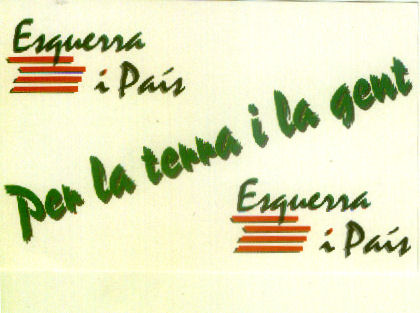 Esquerra
i País
Per la terra i la gent
Esquerra
i País